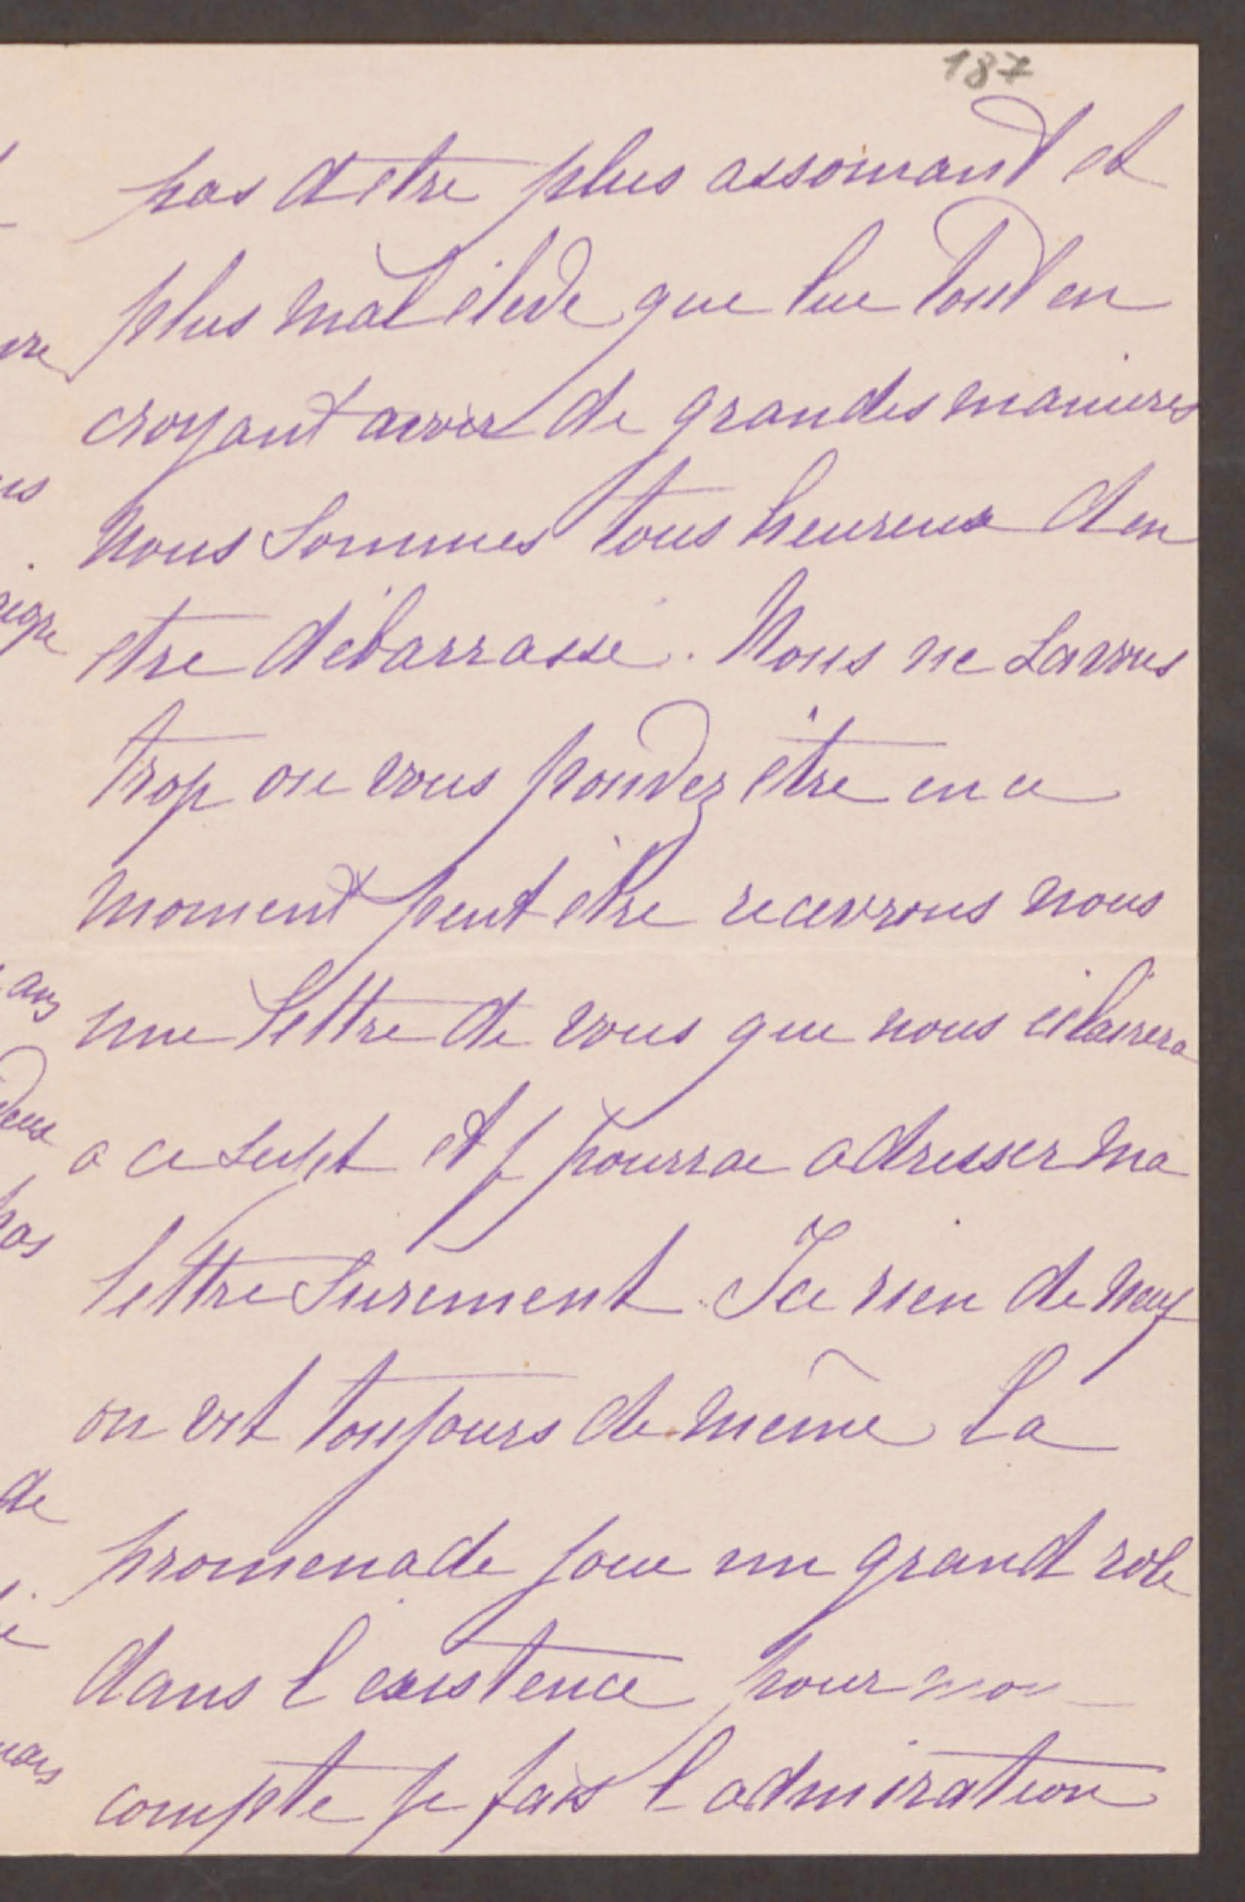 187
pas d etre plus assomant et
plus mal elevé que lui tout en
croyant avoir de grandes manieres
nous sommes tous heureux d en
etre débarrassé. Nous ne savons
trop ou vous pouvez être en ce
moment peut être recevrons nous
une lettre de vous que nous éclairera
a ce sujet et je pourrai adresser ma
lettre surement. Ici rien de neuf
on vit toujours de même la
promenade joue un grand role
dans l existence pour mon
compte je fais l admiration